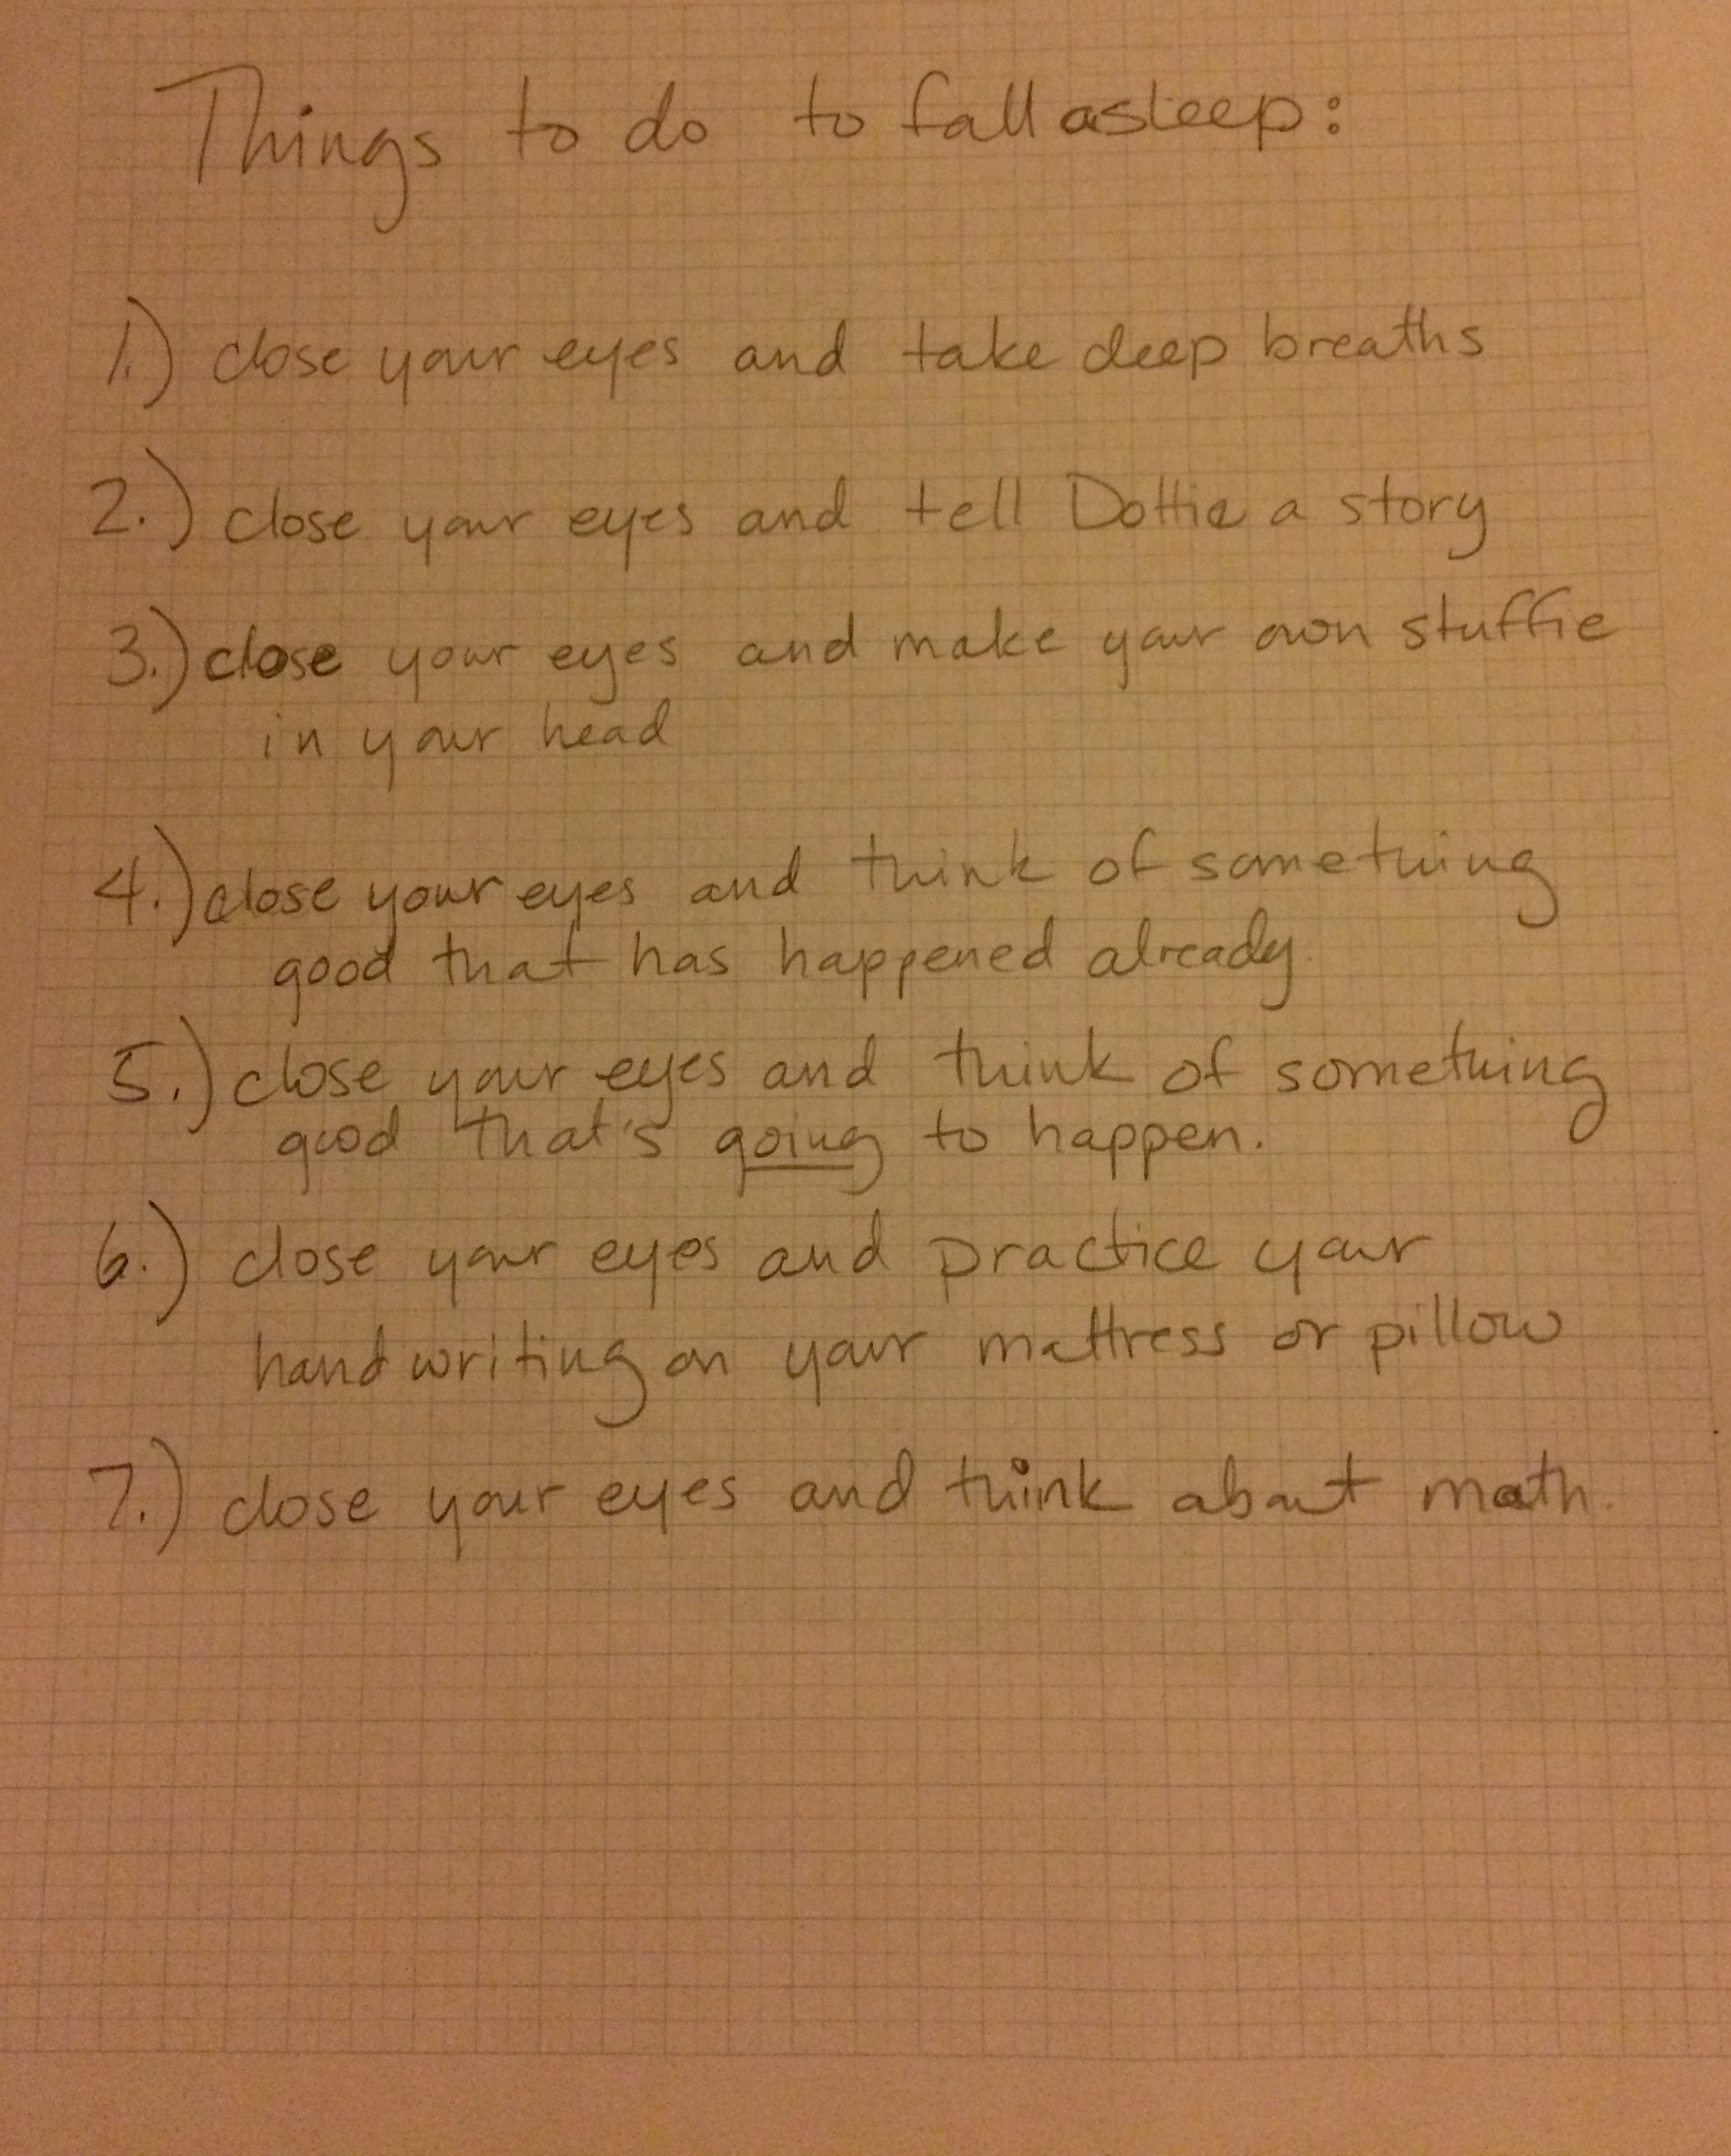 Things to do to fall asleep:
1.) close your eyes and take deep breaths
2.) close your eyes and tell Dottie a story
3.) close your eyes and make your own stuffie
in your head
4.) close your eyes and think of something
good that has happened already.
5.) close your eyes and think of something
good that's going to happen.
6.) close your eyes and practice your
handwriting on your mattress or pillow
7.) close your eyes and think about math.